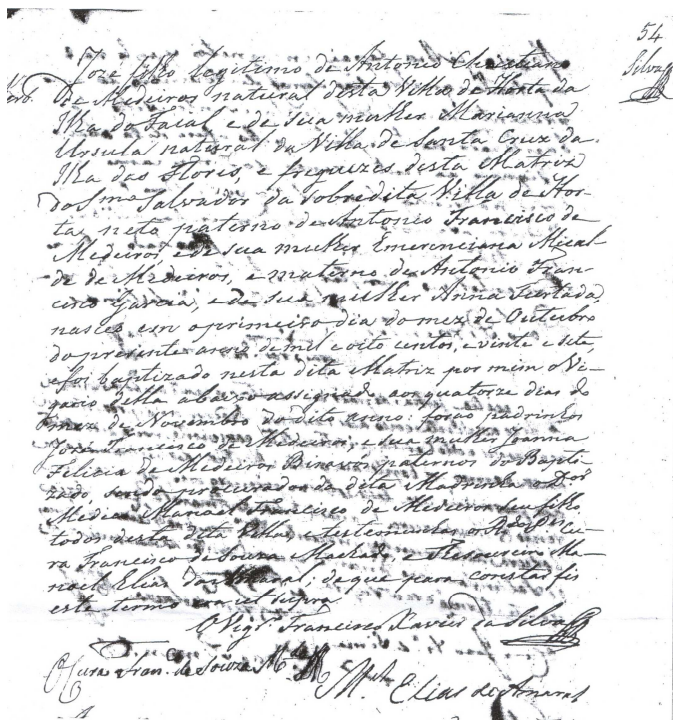 54
Silva
Joze filho legitimo de Antonio Christiano
de Medeiros natural desta Villa de Horta da
Ilha do Faial e de sua mulher Marianna
Ursula natural da Villa de Santa Cruz da
Ilha das Flores, e freguezes desta Matriz
do Smo Salvador da sobredita Villa de Hor-
ta, neto paterno de Antonio Francisco de
Medeiros, e de sua mulher Emerenciana
de de Medeiros, e materno de Antonio Fran-
cisco Garcia, e de sua mulher Anna Furtada,
nasceo em o primeiro dia do mez de Outubro
do presente anno de mil e oito centos, e vinte e sete,
e foi baptizado nesta dita Matriz por mim o Vi-
gario della abaixo assignado aos quatorze dias do
mez de Novembro do dito anno: forão padrinhos
José Francisco de Medeiros, e sua mulher Joanna
Felicia de Medeiros Bisavos paternos do Bapti-
zado, sendo procurador da dita Madrinha o Dor
Medico Manoel Francisco de Medeiros seu filho
todos desta dita Villa, e testemunhas o Rdo Pe Cu-
ra Francisco de Souza Machado, e Thesoureiro Ma-
noel Elias do Amaral; de que para constar fis
este termo era ut supra
O Vigro Francisco Xavier da Silva
O Cura Fran.co de Souza Mdo
Mel Elias do Amaral